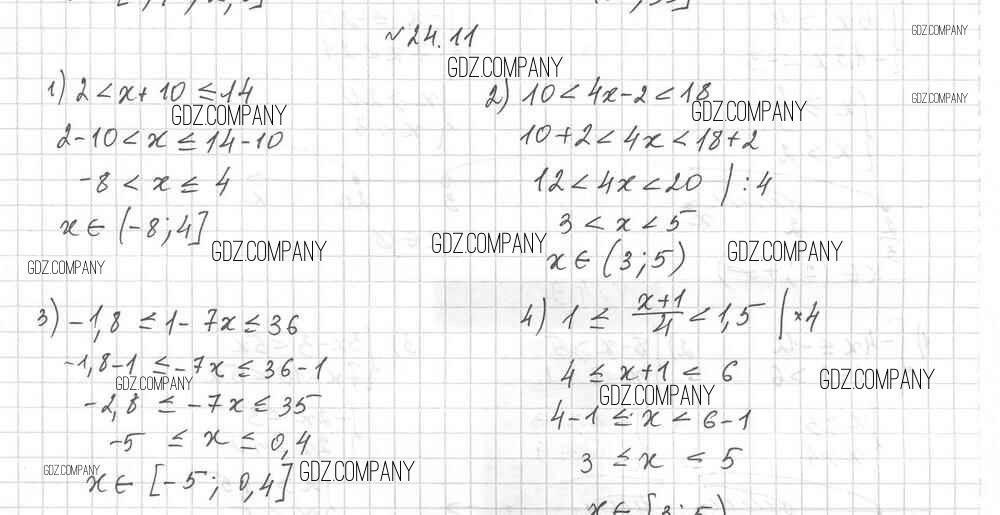 №24.11
1) 2 < x + 10 ≤ 14
2 - 10 < x ≤ 14 - 10
-8 < x ≤ 4
x ∈ (-8; 4]
2) 10 < 4x - 2 < 18
10 + 2 < 4x < 18 + 2
12 < 4x < 20 | : 4
3 < x < 5
x ∈ (3; 5)
3) -1,8 ≤ 1 - 7x ≤ 36
-1,8 - 1 ≤ -7x ≤ 36 - 1
-2,8 ≤ -7x ≤ 35
-5 ≤ x ≤ 0,4
x ∈ [-5; 0,4]
4) 1 ≤ (x+1)/4 < 1,5 | × 4
4 ≤ x + 1 < 6
4 - 1 ≤ x < 6 - 1
3 ≤ x < 5
x ∈ [3; 5)
GDZ.COMPANY
GDZ.COMPANY
GDZ.COMPANY
GDZ.COMPANY
GDZ.COMPANY
GDZ.COMPANY
GDZ.COMPANY
GDZ.COMPANY
GDZ.COMPANY
GDZ.COMPANY
GDZ.COMPANY
GDZ.COMPANY
GDZ.COMPANY
GDZ.COMPANY